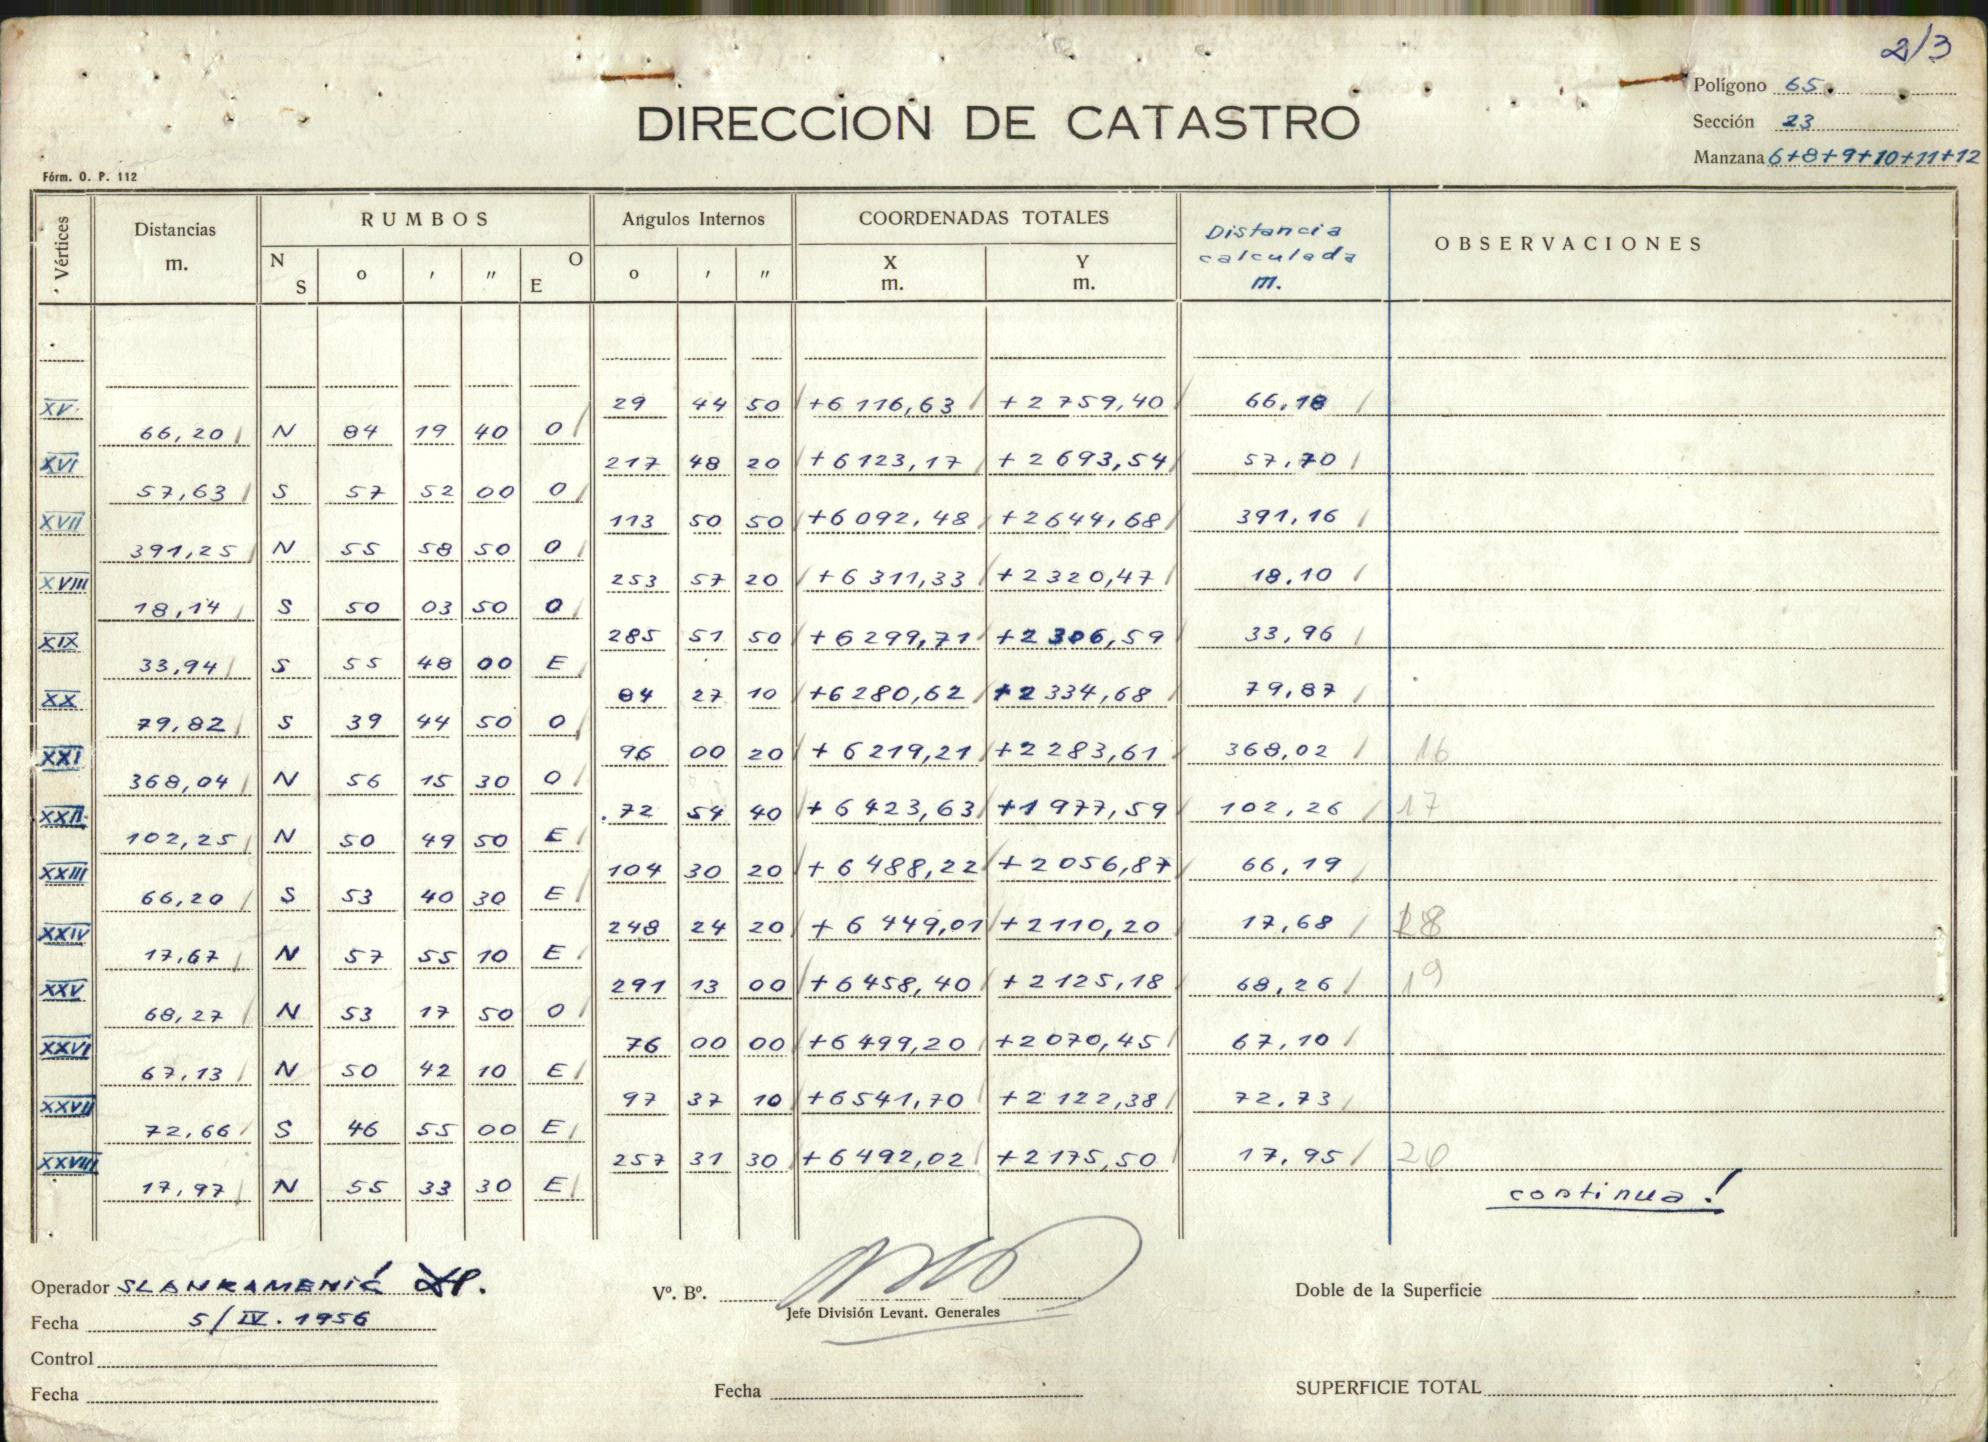 2/3
Polígono 65
DIRECCION DE CATASTRO
Sección 23
Manzana 6+8+9+10+11+12
Fórm. O. P. 112
Vértices
Distancias
m.
RUMBOS
N
S
o
′
″
O
E
Angulos Internos
o
′
″
COORDENADAS TOTALES
X
m.
Y
m.
Distancia
calculada
m.
OBSERVACIONES
XV 29 44 50 +6 116,63 +2 759,40 66,18
66,20 N 84 19 40 O
XVI 217 48 20 +6 123,17 +2 693,54 57,70
57,63 S 57 52 00 O
XVII 113 50 50 +6 092,48 +2 644,68 391,16
391,25 N 55 58 50 O
XVIII 253 57 20 +6 311,33 +2 320,47 18,10
18,14 S 50 03 50 O
XIX 285 51 50 +6 299,71 +2 306,59 33,96
33,94 S 55 48 00 E
XX 84 27 10 +6 280,62 +2 334,68 79,87
79,82 S 39 44 50 O
XXI 96 00 20 +6 219,21 +2 283,61 368,02 16
368,04 N 56 15 30 O
XXII 72 54 40 +6 423,63 +1 977,59 102,26 17
102,25 N 50 49 50 E
XXIII 104 30 20 +6 488,22 +2 056,87 66,19
66,20 S 53 40 30 E
XXIV 248 24 20 +6 449,01 +2 110,20 17,68 18
17,67 N 57 55 10 E
XXV 291 13 00 +6 458,40 +2 125,18 68,26 19
68,27 N 53 17 50 O
XXVI 76 00 00 +6 499,20 +2 070,45 67,10
67,13 N 50 42 10 E
XXVII 97 37 10 +6 541,70 +2 122,38 72,73
72,66 S 46 55 00 E
XXVIII 257 31 30 +6 492,02 +2 175,50 17,95 20
17,97 N 55 33 30 E
continua!
Operador SLANKAMENIĆ
Vº. Bº.
Doble de la Superficie
Jefe División Levant. Generales
Fecha 5/IV. 1956
Control
Fecha
Fecha
SUPERFICIE TOTAL